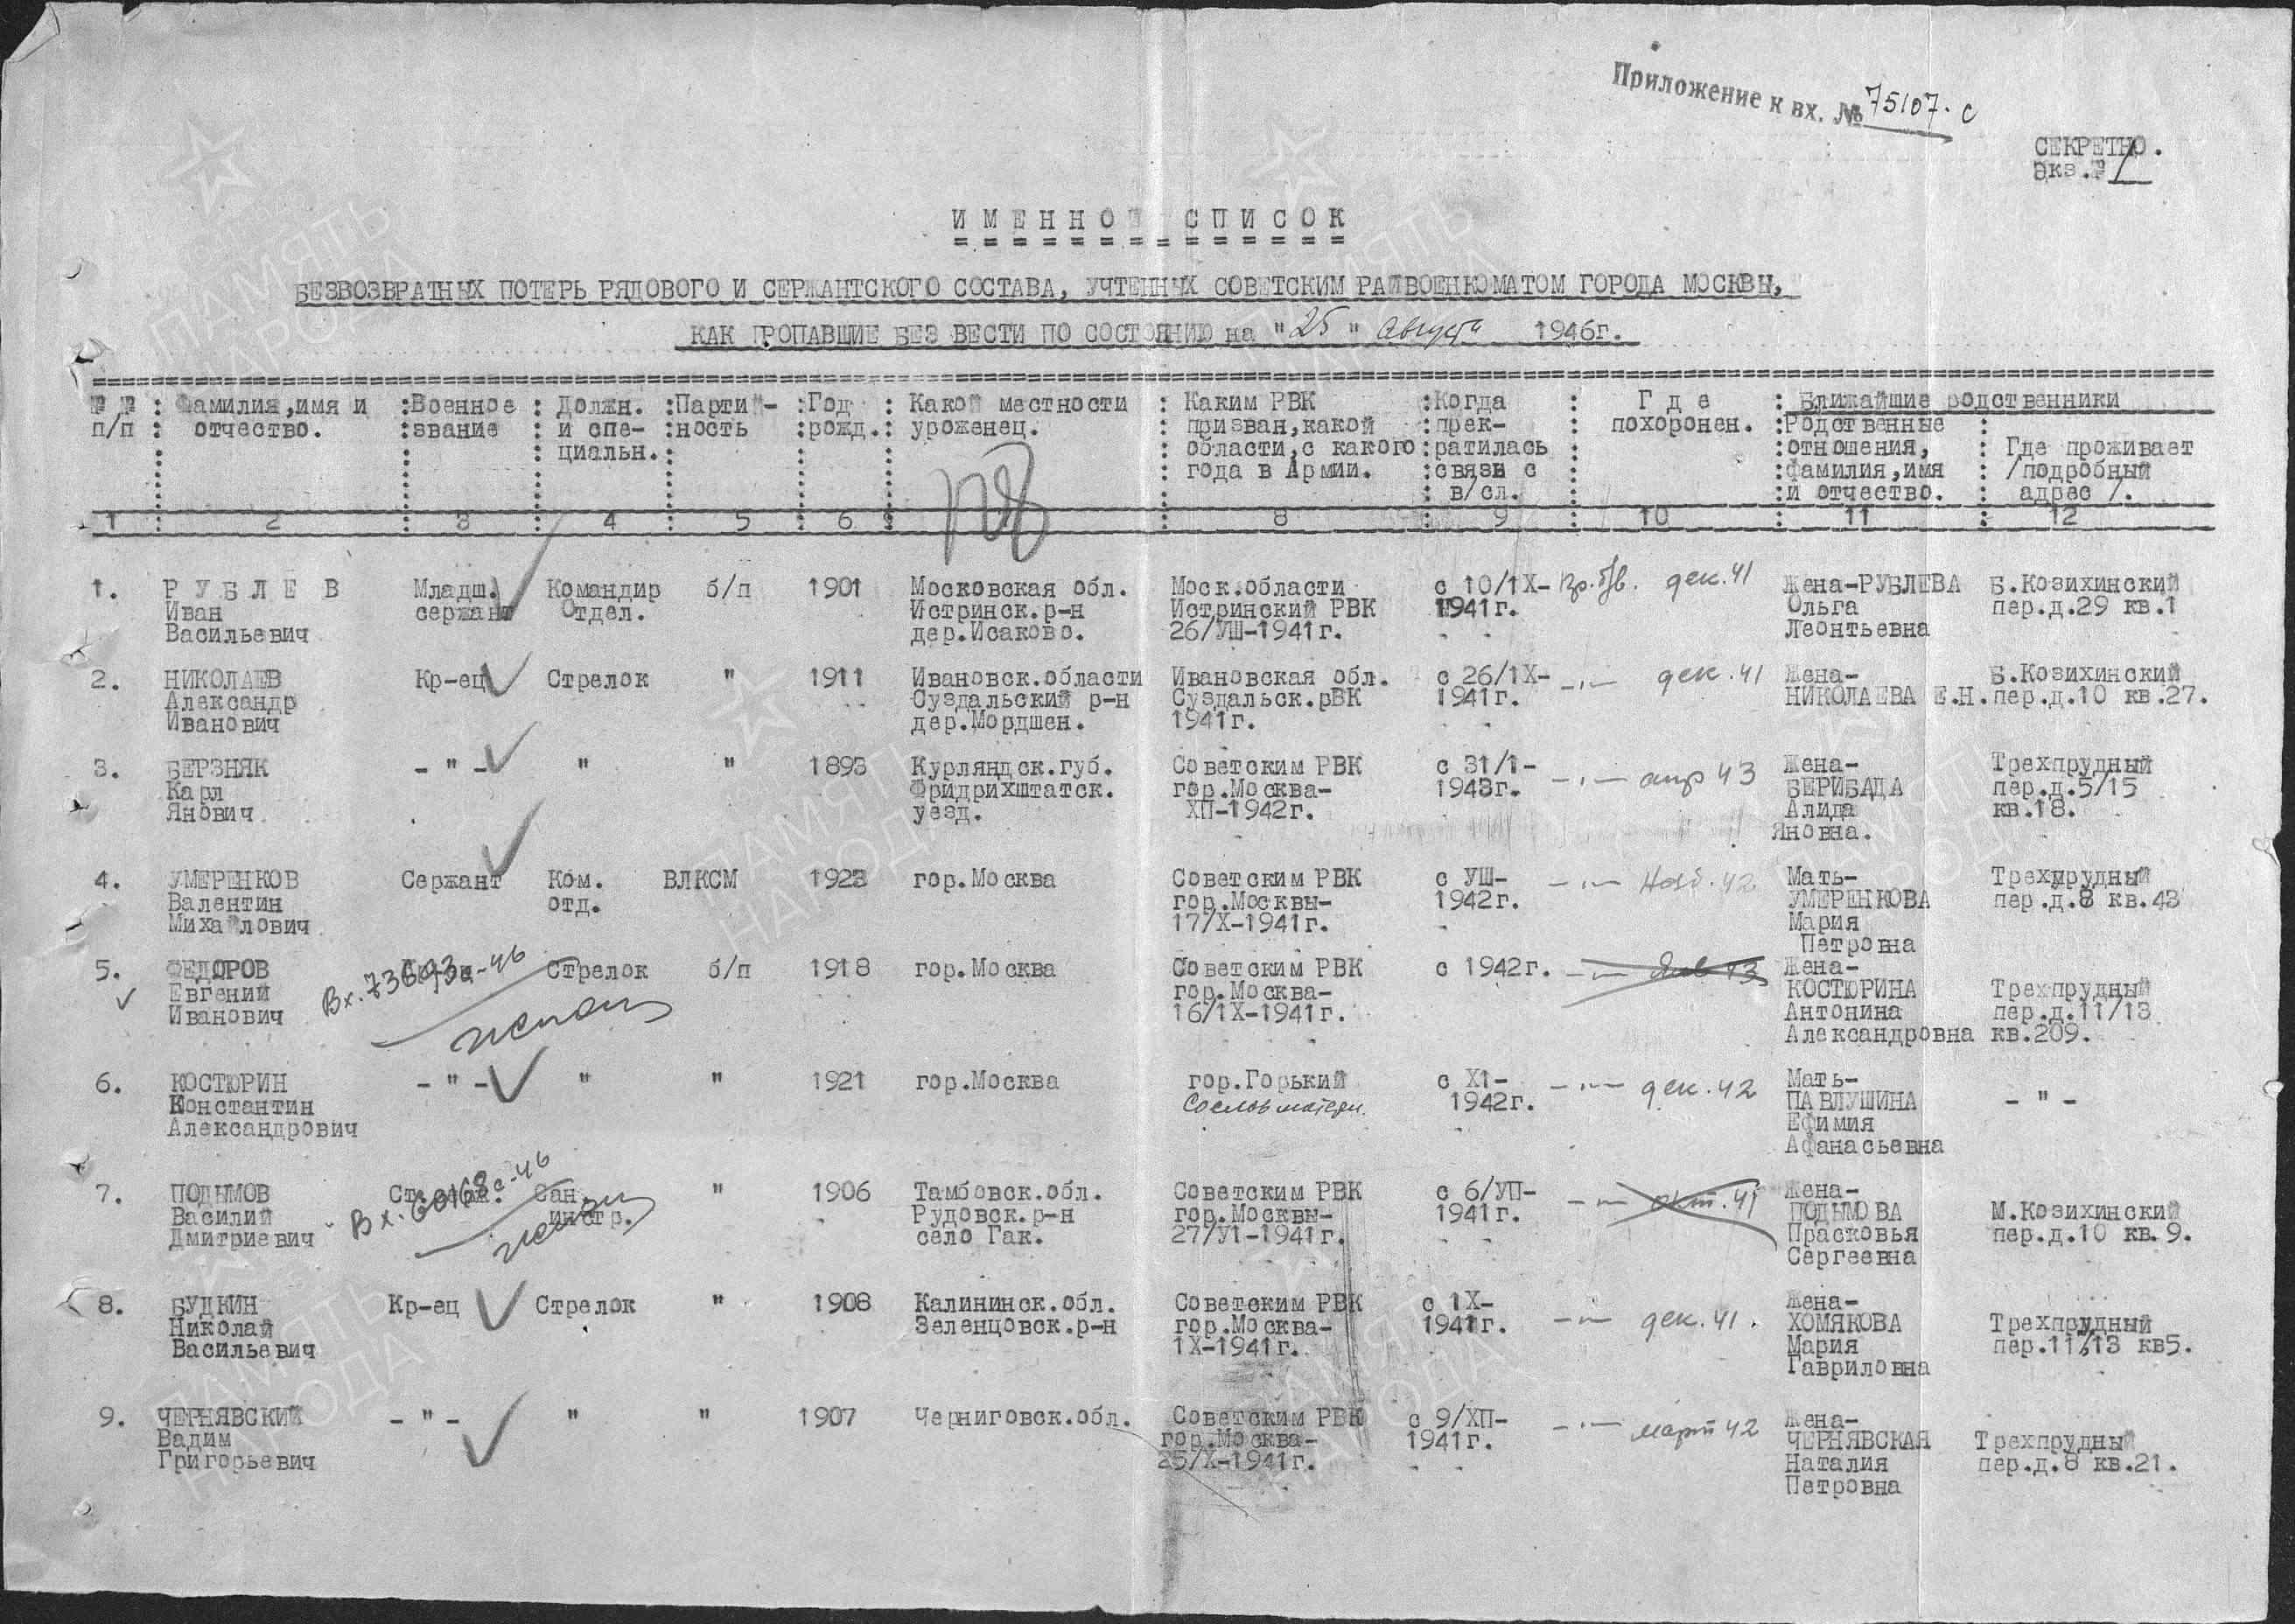 Приложение к вх. № 75107·с
СЕКРЕТНО.
Экз.№ 1
ИМЕННОЙ СПИСОК
БЕЗВОЗВРАТНЫХ ПОТЕРЬ РЯДОВОГО И СЕРЖАНТСКОГО СОСТАВА, УЧТЕННЫХ СОВЕТСКИМ РАЙВОЕНКОМАТОМ ГОРОДА МОСКВЫ,
КАК ПРОПАВШИЕ БЕЗ ВЕСТИ ПО СОСТОЯНИЮ на "25" августа 1946г.
№ № : Фамилия,имя и :Военное : Должн. :Партий- :Год : Какой местности : Каким РВК :Когда : Г д е : Ближайшие родственники
п/п : отчество. :звание : и спе- :ность :рожд.: уроженец. : призван,какой :прек- : похоронен. :Родственные :
циальн.: области,с какого :ратилась :отношения, : Где проживает
года в Армии. :связь с :фамилия,имя : /подробный
в/сл. :и отчество. : адрес /.
1 : 2 : 3 : 4 : 5 : 6 : 8 : 9 : 10 : 11 : 12
1. Р У Б Л Е В Младш. Командир б/п 1901 Московская обл. Моск.области с 10/1Х- дек.41 Жена-РУБЛЕВА Б.Козихинский
Иван сержант Отдел. Истринск.р-н Истринский РВК 1941г. Ольга пер.д.29 кв.1
Васильевич дер.Исаково. 26/УШ-1941г. Леонтьевна
2. НИКОЛАЕВ Кр-ец Стрелок " 1911 Ивановск.области Ивановская обл. с 26/1Х- -"- дек.41 Жена- Б.Козихинский
Александр Суздальский р-н Суздальск.рВК 1941г. НИКОЛАЕВА Е.Н. пер.д.10 кв.27.
Иванович дер.Мордшен. 1941г.
3. БЕРЗНЯК - " - " " 1893 Курляндск.губ. Советским РВК с 31/1- -"- апр 43 Жена- Трехпрудный
Карл Фридрихштатск. гор.Москва- 1943г. БЕРИБАДА пер.д.5/15
Янович уезд. ХП-1942г. Алида кв.18.
Яновна.
4. УМЕРЕНКОВ Сержант Ком. ВЛКСМ 1923 гор.Москва Советским РВК с УШ- -"- нояб.42 Мать- Трехпрудный
Валентин отд. гор.Москвы- 1942г. УМЕРЕНКОВА пер.д.8 кв.43
Михайлович 17/Х-1941г. Мария
Петровна
5. ФЕДОРОВ Вх.73693с-46 Стрелок б/п 1918 гор.Москва Советским РВК с 1942г. -"- Янв 43 Жена-
Евгений гор.Москва- КОСТЮРИНА Трехпрудный
Иванович 16/1Х-1941г. Антонина пер.д.11/13
Александровна кв.209.
6. КОСТЮРИН - " - " " 1921 гор.Москва гор.Горький с Х1- -"- дек.42 Мать-
Константин Со слов матери. 1942г. ПАВЛУШИНА - " -
Александрович Ефимия
Афанасьевна
7. ПОДЫМОВ Вх.60168с-46 Сан. " 1906 Тамбовск.обл. Советским РВК с 6/УП- -"- окт.41 Жена-
Василий инстр. Рудовск.р-н гор.Москвы- 1941г. ПОДЫМОВА М.Козихинский
Дмитриевич село Гак. 27/У1-1941г. Прасковья пер.д.10 кв.9.
Сергеевна
8. БУДКИН Кр-ец Стрелок " 1908 Калининск.обл. Советским РВК с 1Х- -"- дек.41. Жена-
Николай Зеленцовск.р-н гор.Москва- 1941г. ХОМЯКОВА Трехпрудный
Васильевич 1Х-1941г. Мария пер.11/13 кв5.
Гавриловна
9. ЧЕРНЯВСКИЙ - " - " " 1907 Черниговск.обл. Советским РВК с 9/ХП- -"- март 42 Жена-
Вадим гор.Москва- 1941г. ЧЕРНЯВСКАЯ Трехпрудный
Григорьевич 25/Х-1941г. Наталия пер.д.8 кв.21.
Петровна
ПАМЯТЬ
НАРОДА